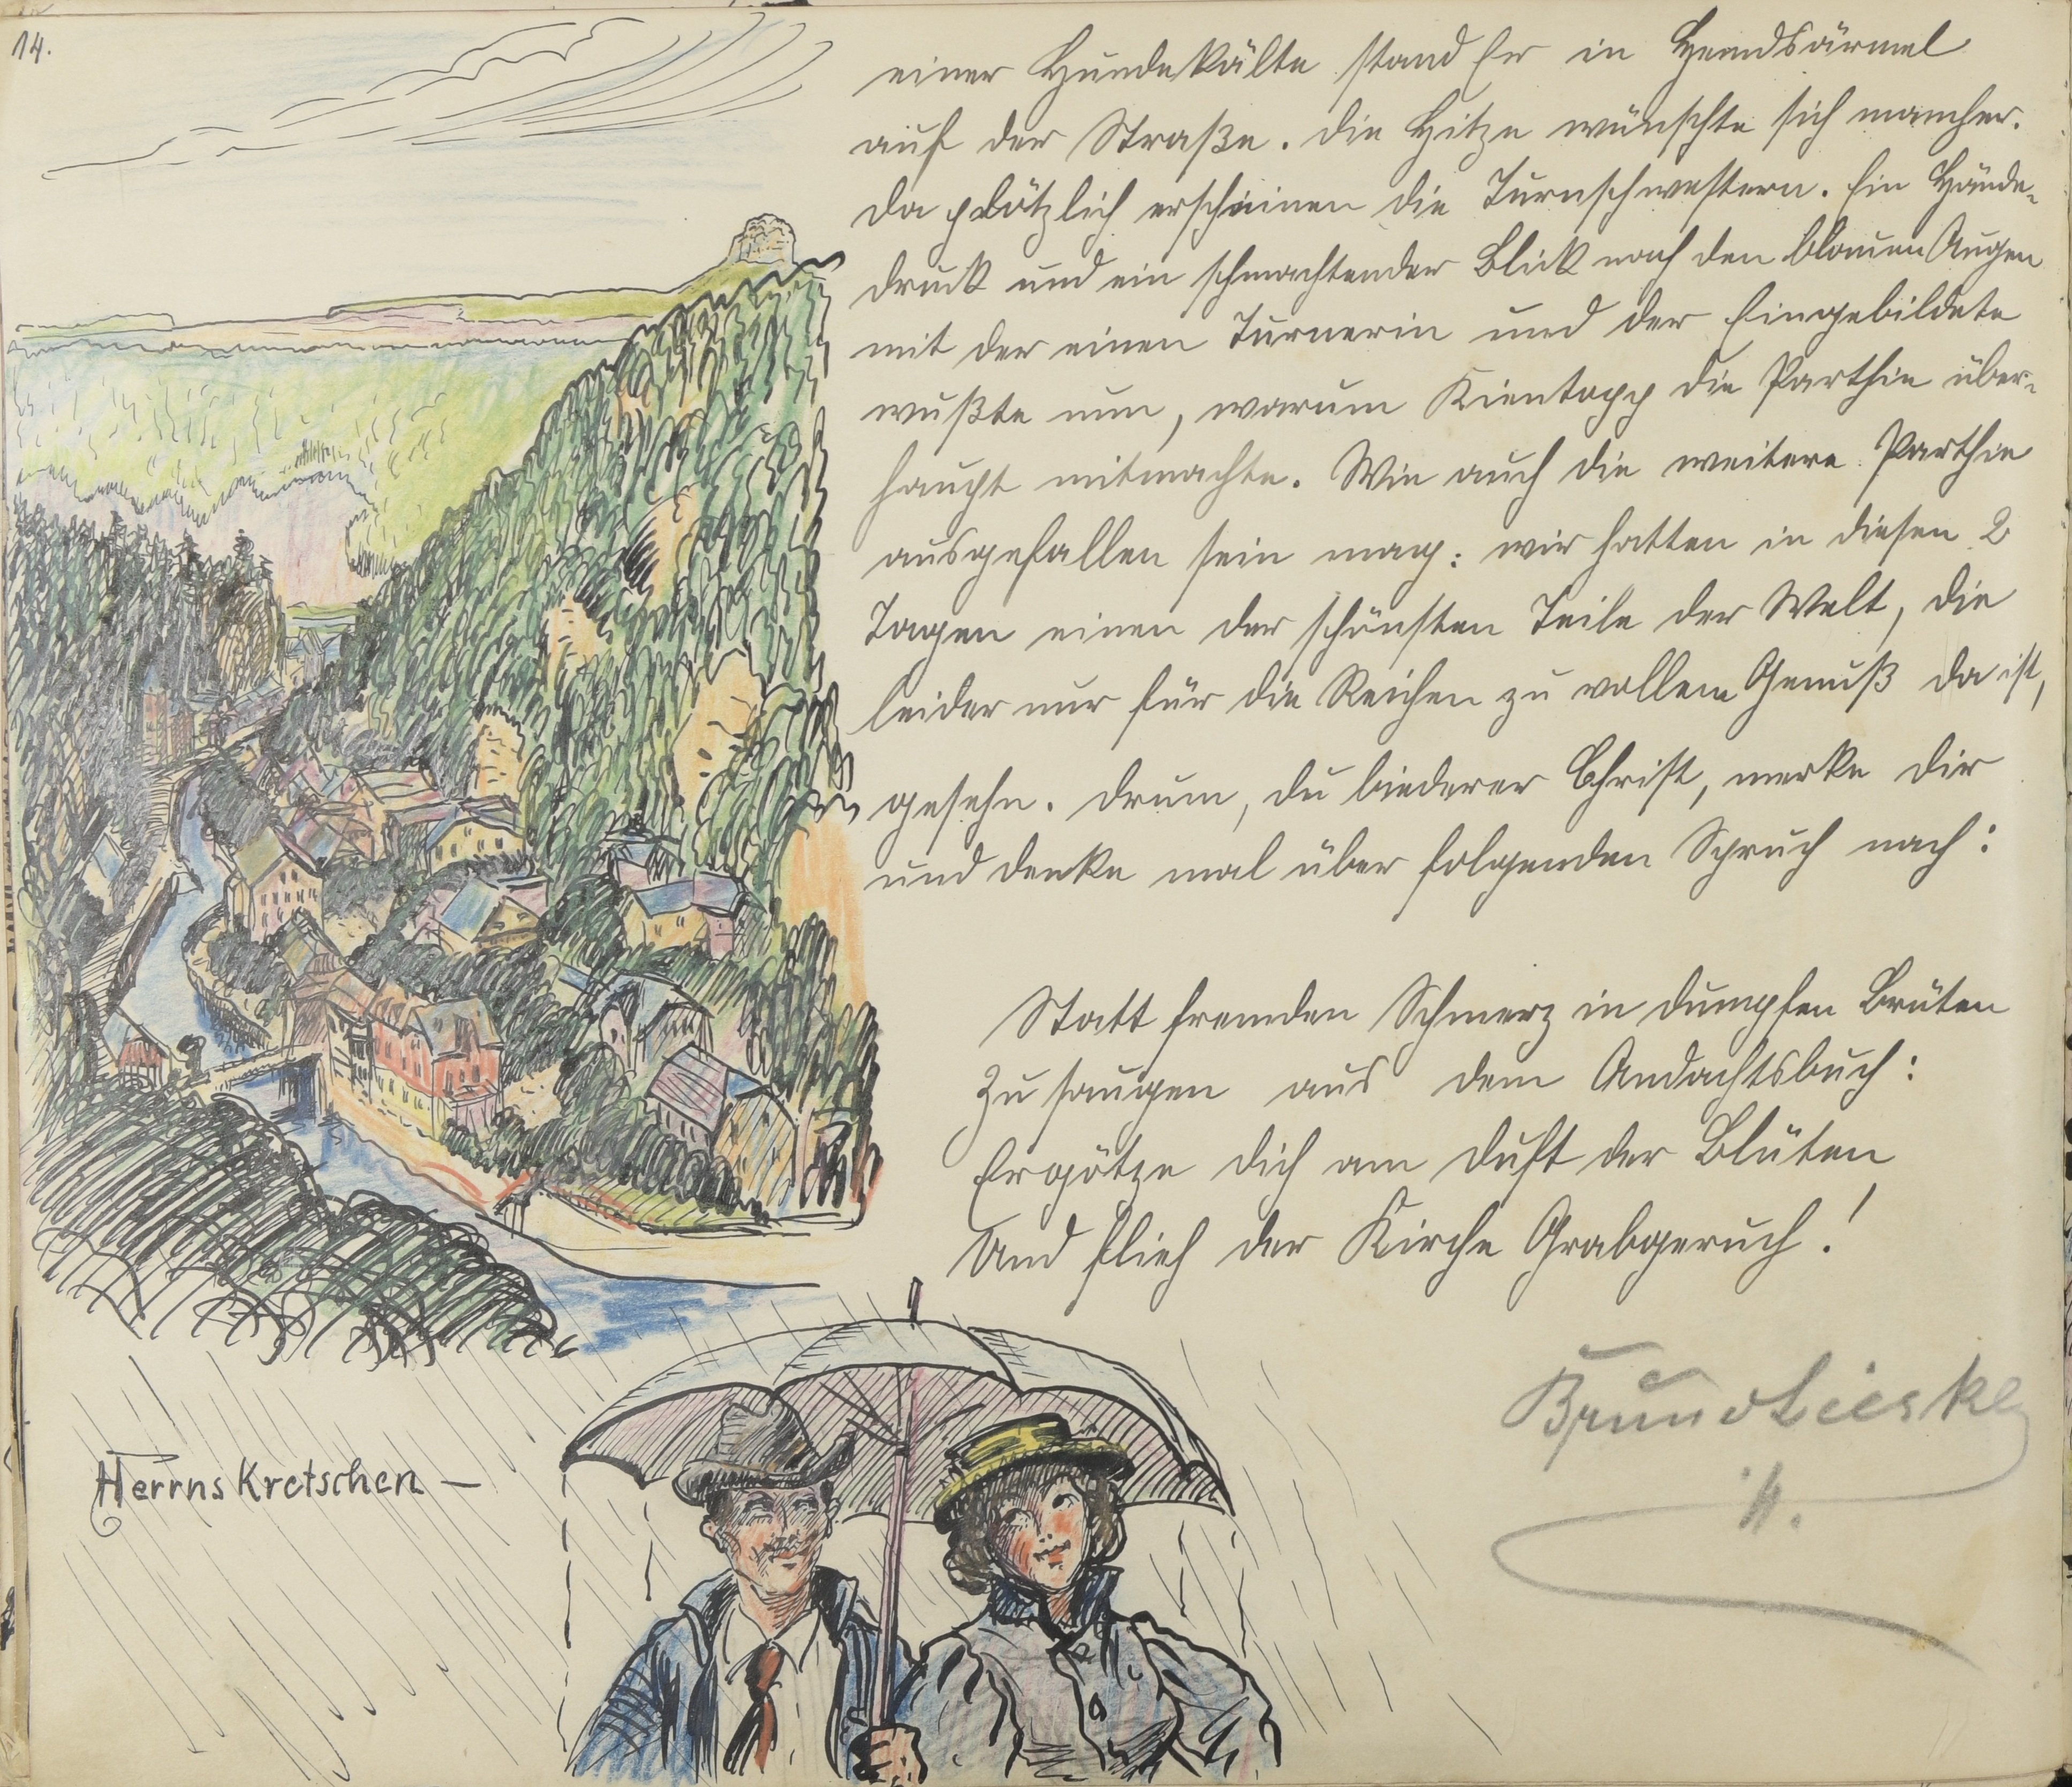 14.
einer Hundekälte stand Er in Hemdsärmel
auf der Straße. Die Hitze wünschte sich mancher.
Da plötzlich erscheinen die Turnschwestern. Ein Hände-
druck und ein schmachtender Blick nach den blauen Augen
mit der einen Turnerin und der Eingebildete
wußte nun, warum Kientopp die Parthie über-
haupt mitmachte. Wie auch die weitere Parthie
ausgefallen sein mag: wir hatten in diesen 2
Tagen einen der schönsten Teile der Welt, die
leider nur für die Reichen zu vollem Genuß da ist,
gesehn. Drum, du biederer Christ, merke dir
und denke mal über folgenden Spruch nach:
Statt fremden Schmerz in dumpfen Brüten
Zu saugen aus dem Andachtsbuch:
Ergötze dich am Duft der Blüten
Und flieh der Kirche Grabgeruch!
Bruno Lieske
Herrns Kretschen –